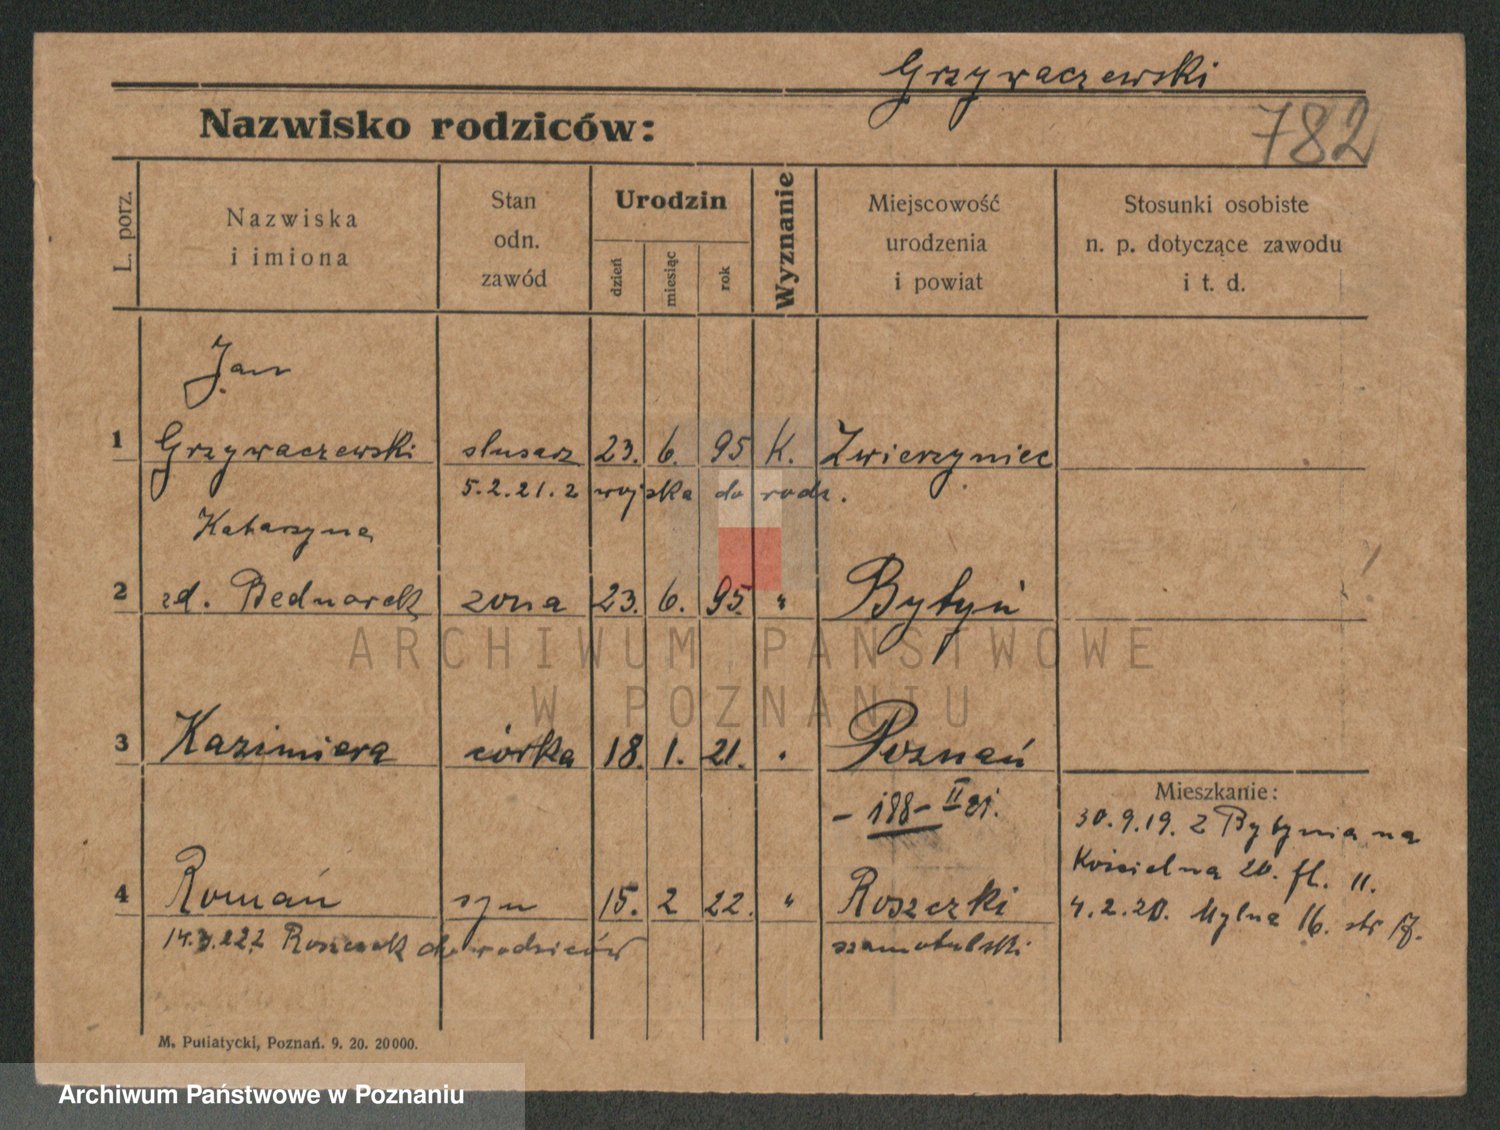 Grzywaczewski
Nazwisko rodziców:
782
L. porz.
Nazwiska
i imiona
Stan
odn.
zawód
Urodzin
dzień
miesiąc
rok
Wyznanie
Miejscowość
urodzenia
i powiat
Stosunki osobiste
n. p. dotyczące zawodu
i t. d.
Jan
1 Grzywaczewski ślusarz 23. 6. 95 K. Zwierzyniec
5.2.21. z wojska do rodz.
Katarzyna
2 zd. Bednarek żona 23. 6. 95. " Bytyń
ARCHIWUM PAŃSTWOWE
W POZNANIU
3 Kazimiera córka 18. 1. 21. " Poznań
- 188 - II 21.
Mieszkanie:
30.9.19. z Bytynia na
Kościelna 20. fl. II.
4.2.20. Mylna 16. str
4 Roman syn 15. 2 22. " Roszczki
14.3.22 z do rodziców
szamotulski
M. Putiatycki, Poznań. 9. 20. 20000.
Archiwum Państwowe w Poznaniu